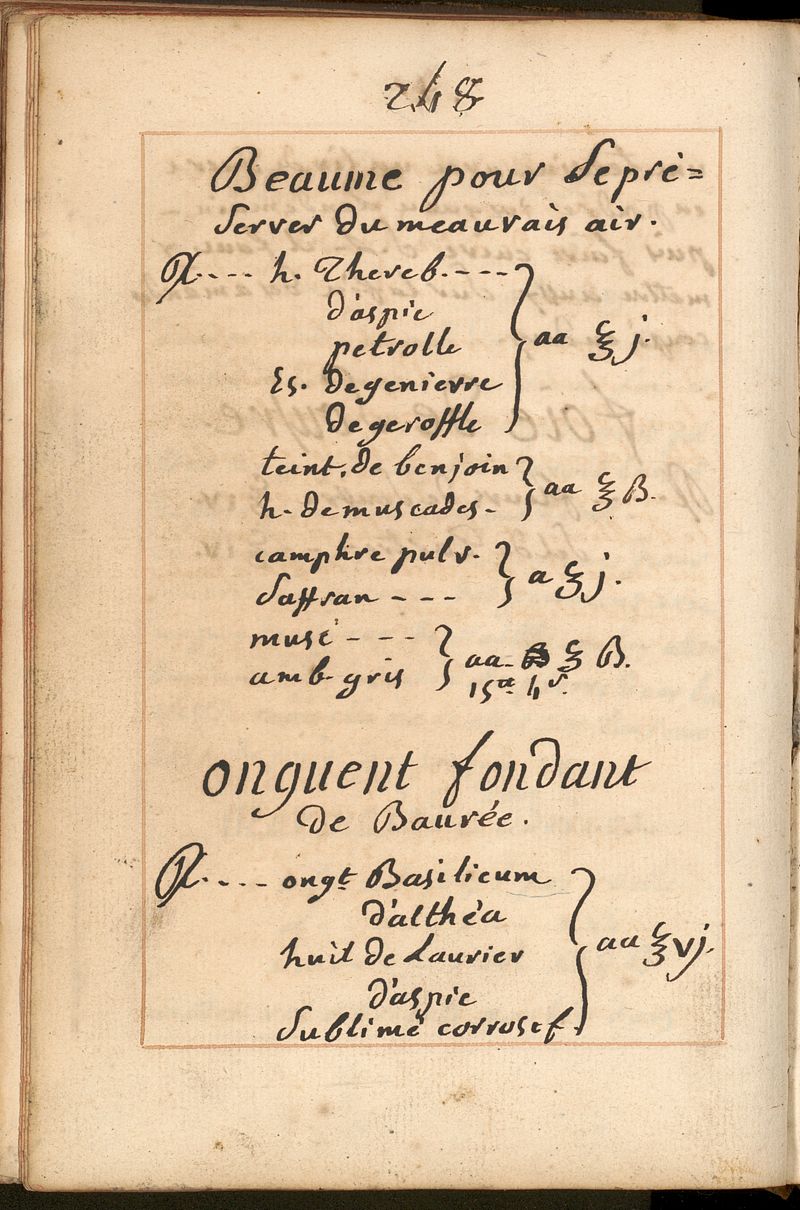 248
Beaume pour Sepré=
server du meauvais air.
℞.---- h. Thereb.----
d'aspic
petrolle } aa ℥ j.
Es. de genievre
de geroffle
teint. de benjoin
h. de muscades - } aa ℥ ß.
camphre pulv.
Saffran - - - } a ℥ j.
musc - - - -
amb gris } aa - ℥ ß.
15a 4r.
onguent fondant
de Baurée.
℞.--- ongt Basilicum
d'althéa
huil de Laurier } aa ℥ vj.
d'aspic
Sublimé corrosef.